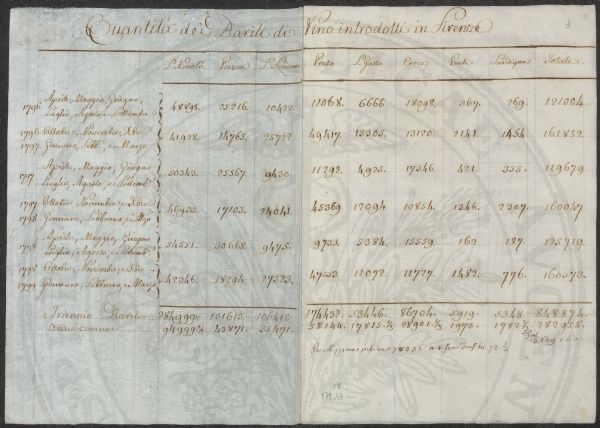 Quantità de Barili di Vino introdotti in Firenze
S. Niccolò Piazza S. Prato S. Gallo Croce Pinti Totale
1796 Aprile, Maggio, Giugno,
Luglio, Agosto, e Settembre 48898. 25216. 10422. 11068. 6666 18098. 367. 269. 121004
1796. Ottobre, Novembre, Xbre
1797. Gennaro, Febb. e Marzo 41928. 14765. 25722. 49417. 13305. 13120 2141. 1454 161852
1797 Aprile, Maggio, Giugno
Luglio, Agosto, e Settemb. 50343. 25567. 9430. 11292. 4925. 17346. 421. 355. 119679
1797 Ottobre Novembre, e Xbre
1798 Gennaro, Febbraro, e Mzo 46933. 17103. 24041. 45369 12094 10854. 1346. 2307. 160047
1798 Aprile, Maggio, Giugno
Luglio, Agosto, e Settemb. 54551. 30668. 9475. 9733. 5384. 15559. 162 187. 125719
1798 Ottobre, Novembre, e Xbre
1799 Gennaro, Febbraro, e Marzo 42346. 18294. 27323. 47553 11072. 11727. 1482. 776. 160573
Triennio Barili 284999. 131613. 106413. 174432. 53446. 86704. 5919. 5348 848874.
Anno comune 94999 2/3 43871. 35471. 58144. 17815 1/3 28901 1/3 1973. 1782 2/3 282958.
18